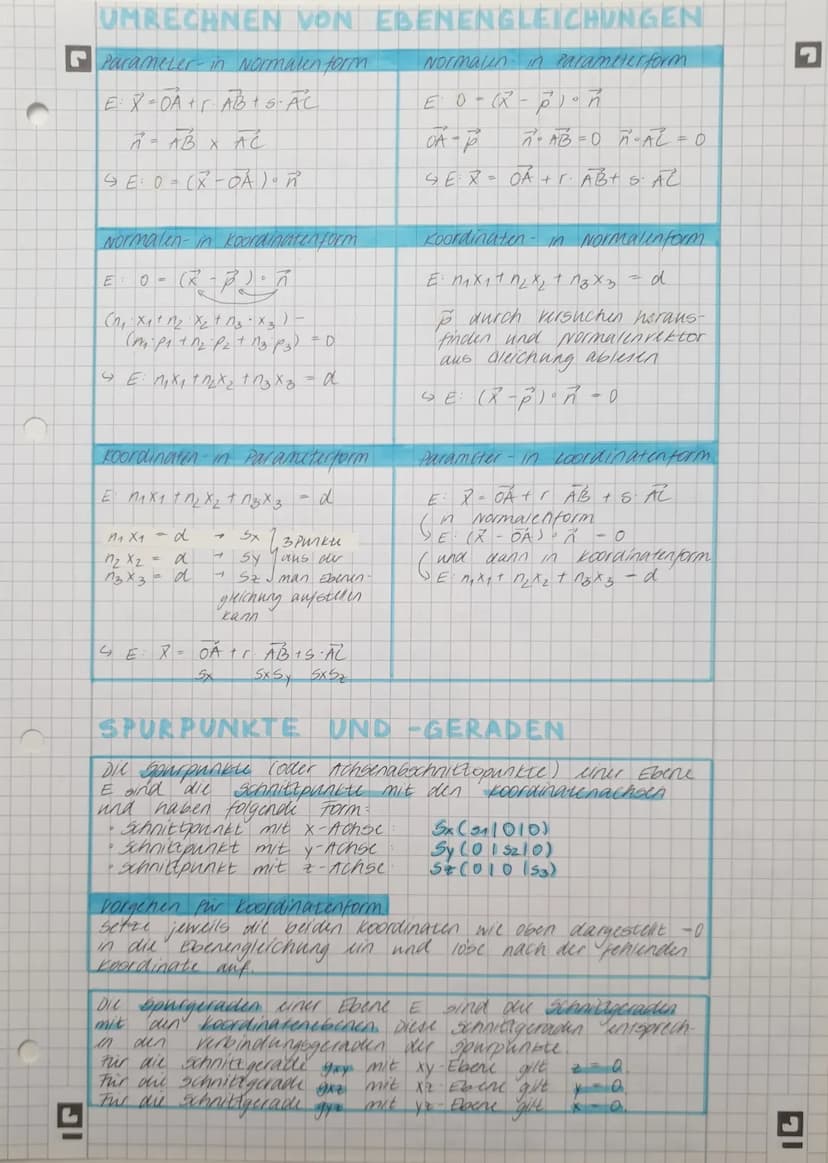 UMRECHNEN VON EBENENGLEICHUNGEN
Parameter- in Normalenform
E: x⃗ = OA⃗ + r · AB⃗ + s · AC⃗
n⃗ = AB⃗ × AC⃗
↳ E: 0 = (x⃗ - OA⃗) ∘ n⃗
Normalen- in Parameterform
E: 0 = (x⃗ - p⃗) ∘ n⃗
OA⃗ = p⃗ n⃗ ∘ AB⃗ = 0 n⃗ ∘ AC⃗ = 0
↳ E: x⃗ = OA⃗ + r · AB⃗ + s · AC⃗
Normalen- in Koordinatenform
E: 0 = (x⃗ - p⃗) ∘ n⃗
(n₁ · x₁ + n₂ · x₂ + n₃ · x₃) -
(n₁ · p₁ + n₂ · p₂ + n₃ · p₃) = 0
↳ E: n₁x₁ + n₂x₂ + n₃x₃ = d
Koordinaten- in Normalenform
E: n₁x₁ + n₂x₂ + n₃x₃ = d
p⃗ durch versuchen heraus-
finden und Normalenvektor
aus Gleichung ablesen
↳ E: (x⃗ - p⃗) ∘ n⃗ = 0
Koordinaten- in Parameterform
E: n₁x₁ + n₂x₂ + n₃x₃ = d
n₁x₁ = d → Sx } 3 Punkte
n₂x₂ = d → Sy } aus der
n₃x₃ = d → Sz } man Ebenen-
gleichung aufstellen
kann
↳ E: x⃗ = OA⃗ + r · AB⃗ + s · AC⃗
Sx SxSy SxSz
Parameter- in Koordinatenform
E: x⃗ = OA⃗ + r AB⃗ + s · AC⃗
in Normalenform
↳ E: (x⃗ - OA⃗) ∘ n⃗ = 0
und dann in Koordinatenform
↳ E: n₁x₁ + n₂x₂ + n₃x₃ = d
SPURPUNKTE UND -GERADEN
Die Spurpunkte (oder Achsenabschnittspunkte) einer Ebene
E sind die Schnittpunkte mit den Koordinatenachsen
und haben folgende Form:
• Schnittpunkt mit x-Achse: Sx(s1|0|0)
• Schnittpunkt mit y-Achse: Sy(0|s2|0)
• Schnittpunkt mit z-Achse: Sz(0|0|s3)
Vorgehen für Koordinatenform
Setze jeweils die beiden Koordinaten wie oben dargestellt =0
in die Ebenengleichung ein und löse nach der fehlenden
Koordinate auf.
Die Spurgeraden einer Ebene E sind die Schnittgeraden
mit den Koordinatenebenen. Diese Schnittgeraden entsprech-
en den Verbindungsgeraden der Spurpunkte.
Für die Schnittgerade gxy mit xy-Ebene gilt z = 0.
Für die Schnittgerade gxz mit xz-Ebene gilt y = 0.
Für die Schnittgerade gyz mit yz-Ebene gilt x = 0.